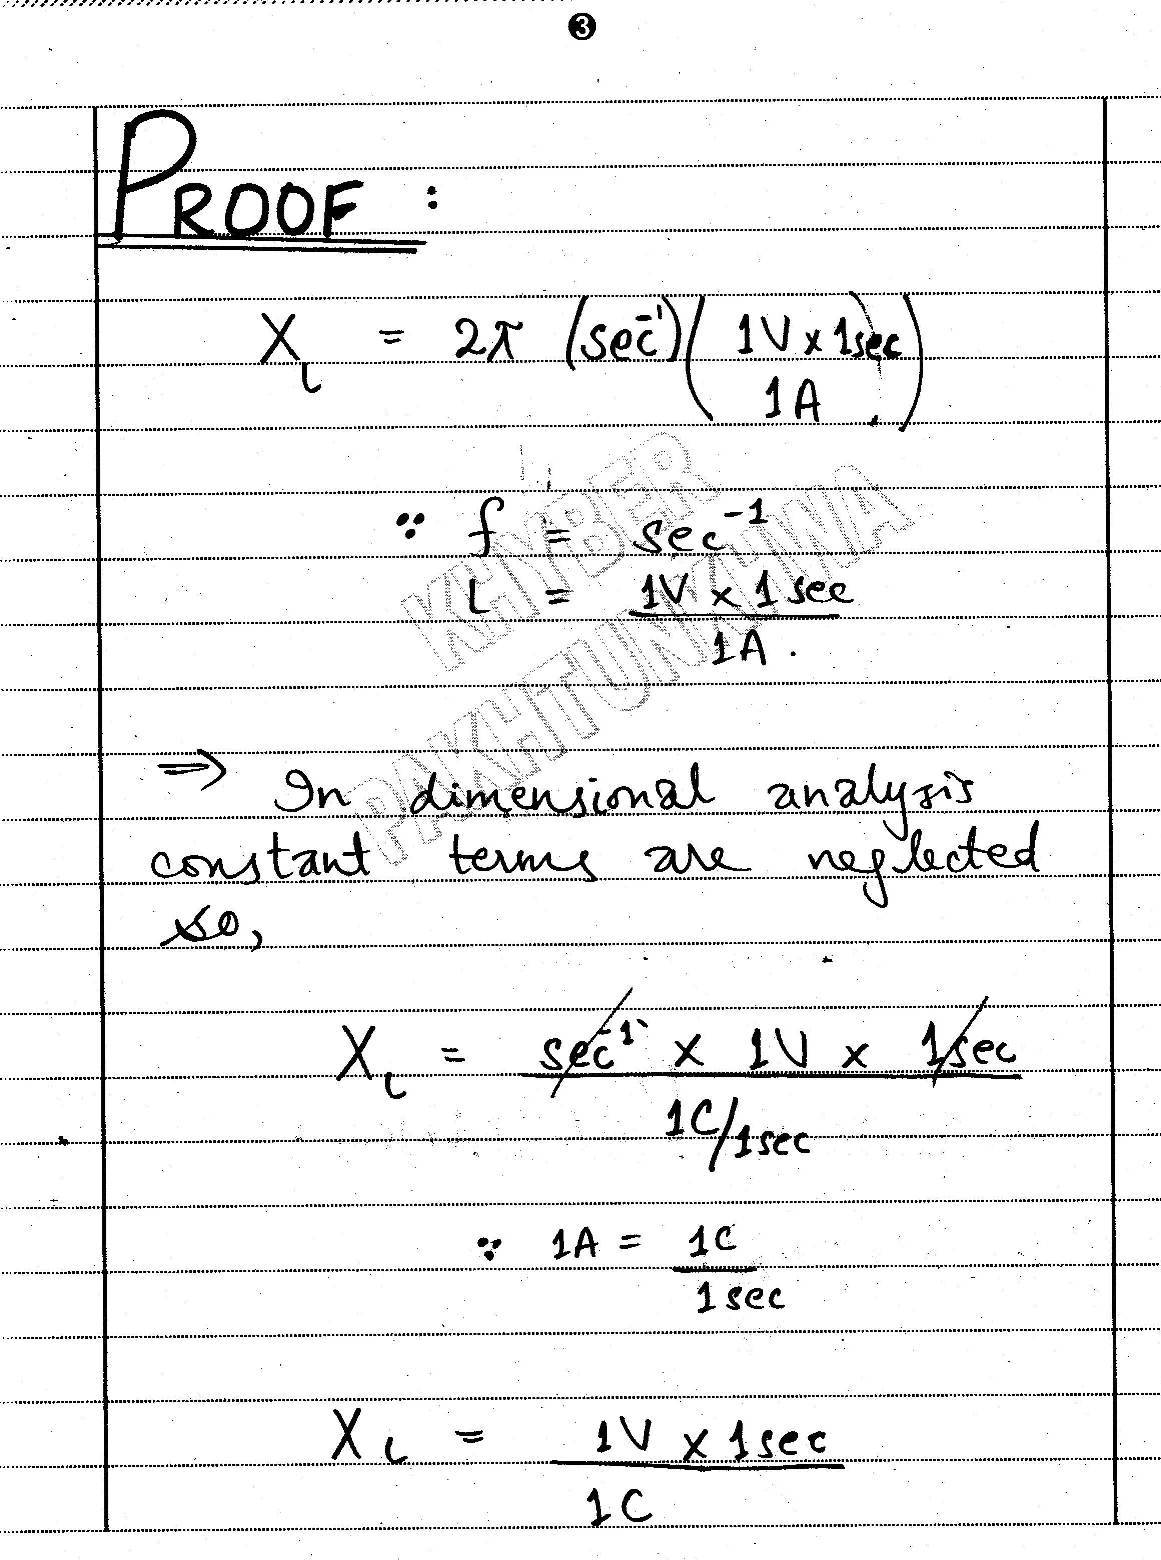 3
PROOF :
X_L = 2π (sec⁻¹) (1V x 1sec / 1A)
∵ f = sec⁻¹
L = 1V x 1sec / 1A.
KHYBER
PAKHTUNKHWA
⇒ In dimensional analysis
constant terms are neglected
so,
X_L = sec⁻¹ x 1V x 1sec / 1C/1sec
∵ 1A = 1C / 1sec
X_L = 1V x 1sec / 1C